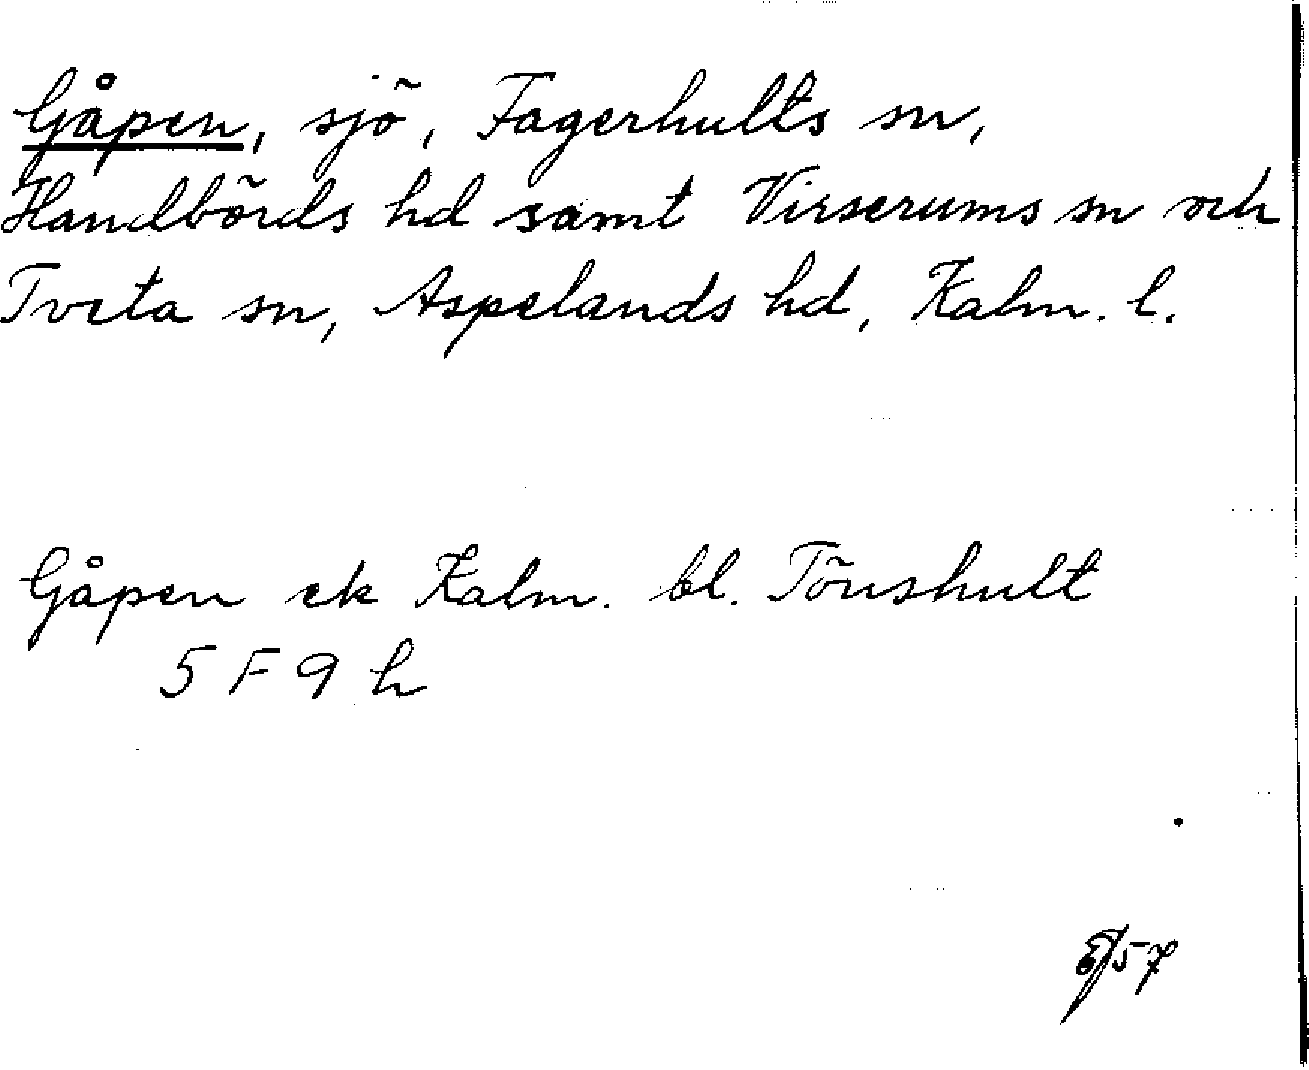 Gåpen, sjö, Fagerhults sn,
Handbörds hd samt Virserums sn och
Tveta sn, Aspelands hd, Kalm. l.
Gåpen ek Kalm. bl. Tönshult
5 F 9 h
57